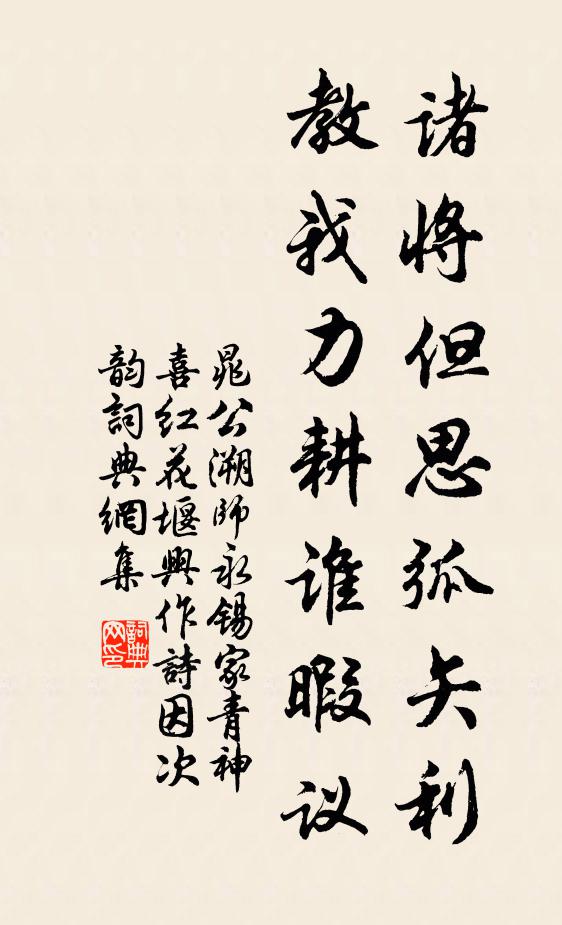 诸将但思弧矢利
教我力耕谁暇议
晁公溯師永锡家青神
喜红花堰興作詩因次
韵詞典網集
詞典
网印